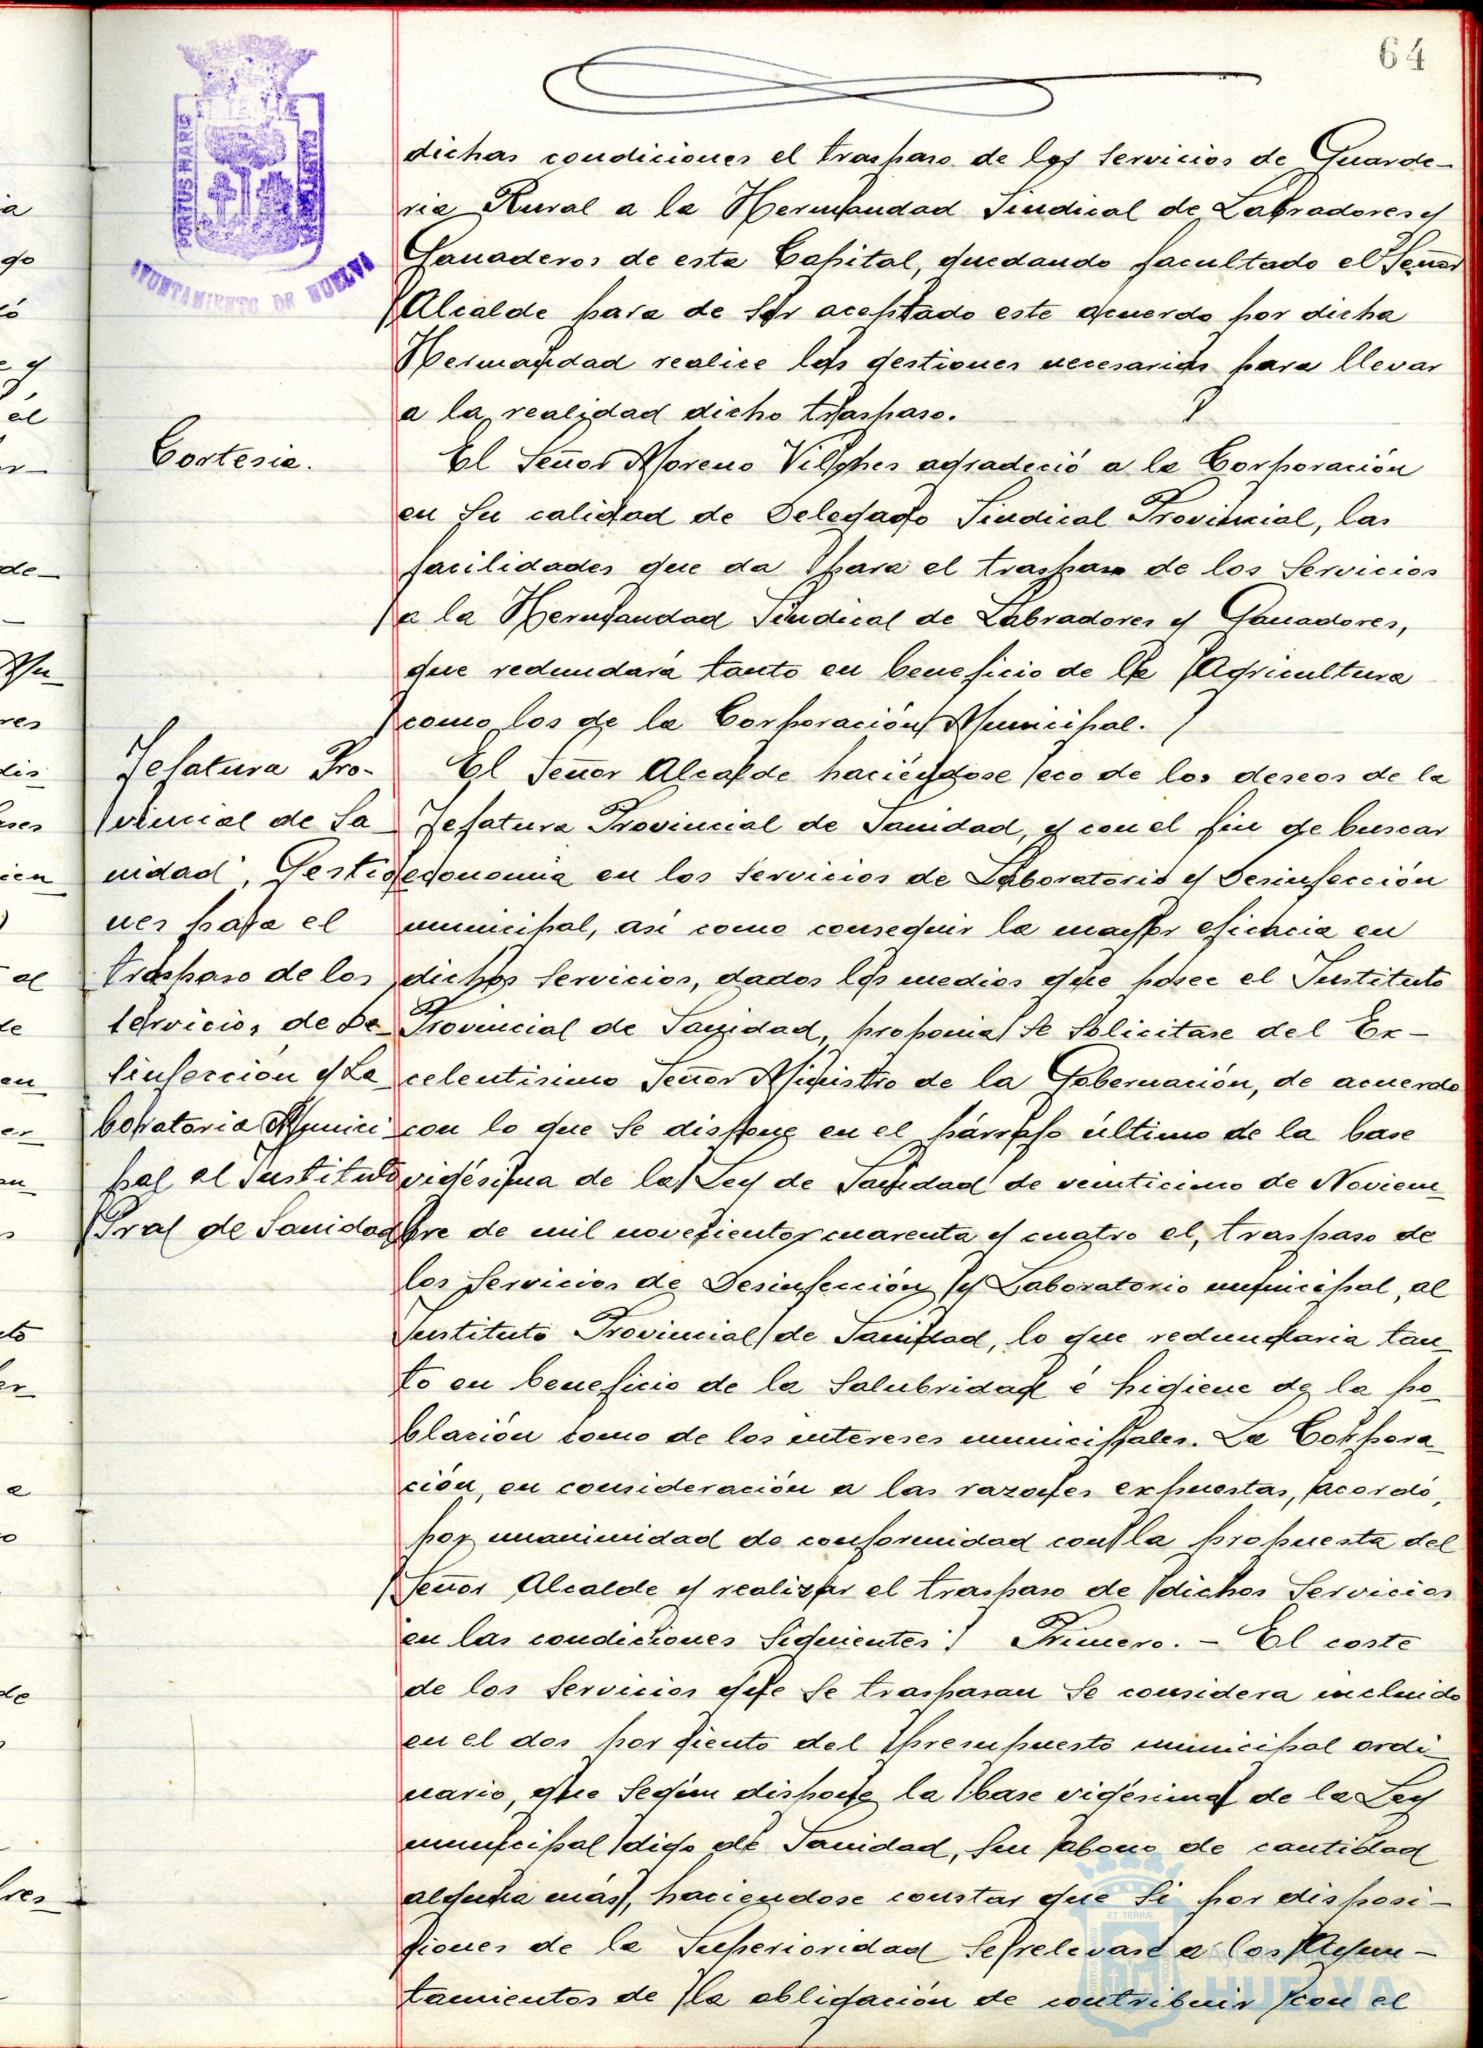 64
PORTUS MARIS
ET TERRAE
AYUNTAMIENTO DE HUELVA
dichas condiciones el traspaso de los servicios de Guarde-
ria Rural a la Hermandad Sindical de Labradores y
Ganaderos de esta Capital, quedando facultado el Señor
Alcalde para de ser aceptado este acuerdo por dicha
Hermandad realice las gestiones necesarias para llevar
a la realidad dicho traspaso.
Cortesia.
El Señor Moreno Vilches agradeció a la Corporación
en su calidad de Delegado Sindical Provincial, las
facilidades que da para el traspaso de los servicios
a la Hermandad Sindical de Labradores y Ganadores,
que redundará tanto en beneficio de la Agricultura
como los de la Corporación Municipal.
Jefatura Pro-
vincial de Sa-
nidad, Gestio
nes para el
traspaso de los
servicios de De-
sinfección y La
boratorio Munici-
pal al Instituto
Pral de Sanidad
El Señor Alcalde haciéndose eco de los deseos de la
Jefatura Provincial de Sanidad, y con el fin de buscar
economia en los servicios de Laboratorio y Desinfección
municipal, asi como conseguir la mayor eficacia en
dichos servicios, dados los medios que posee el Instituto
Provincial de Sanidad, proponia se solicitase del Ex-
celentisimo Señor Ministro de la Gobernación, de acuerdo
con lo que se dispone en el párrafo último de la base
vigésima de la Ley de Sanidad de veinticinco de Noviem-
bre de mil novecientos cuarenta y cuatro el, traspaso de
los servicios de Desinfección y Laboratorio municipal, al
Instituto Provincial de Sanidad, lo que redundaria tan-
to en beneficio de la salubridad é higiene de la po-
blación como de los intereses municipales. La Corpora-
ción, en consideración a las razones expuestas, acordó,
por unanimidad de conformidad con la propuesta del
Señor Alcalde y realizar el traspaso de dichos servicios
en las condiciones siguientes: Primero.- El coste
de los servicios que se traspasan se considera incluido
en el dos por ciento del presupuesto municipal ordi-
nario, que según dispone la base vigésima de la Ley
municipal digo de Sanidad, sin abono de cantidad
alguna más, haciendose constar que si por disposi-
ciones de la Superioridad se relevase a los Ayun-
tamientos de la obligación de contribuir con el
Ayuntamiento de
HUELVA